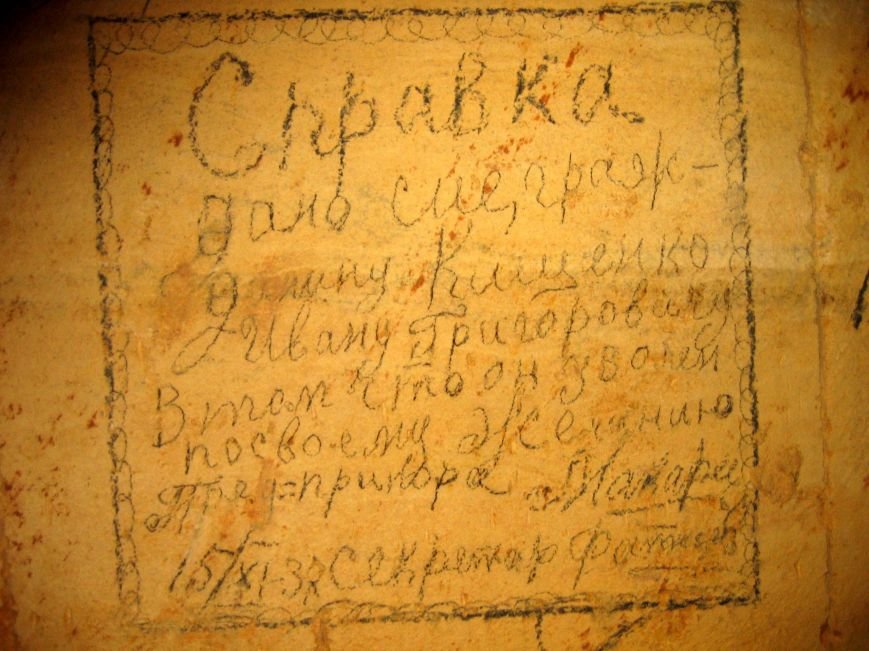 Справка
дано сие, граж-
данину Клищенко
Ивану Григоровичу
В том что он уволен
посвоему Желанию
Пред=прикора Макаре
15/XI-37 Секретар